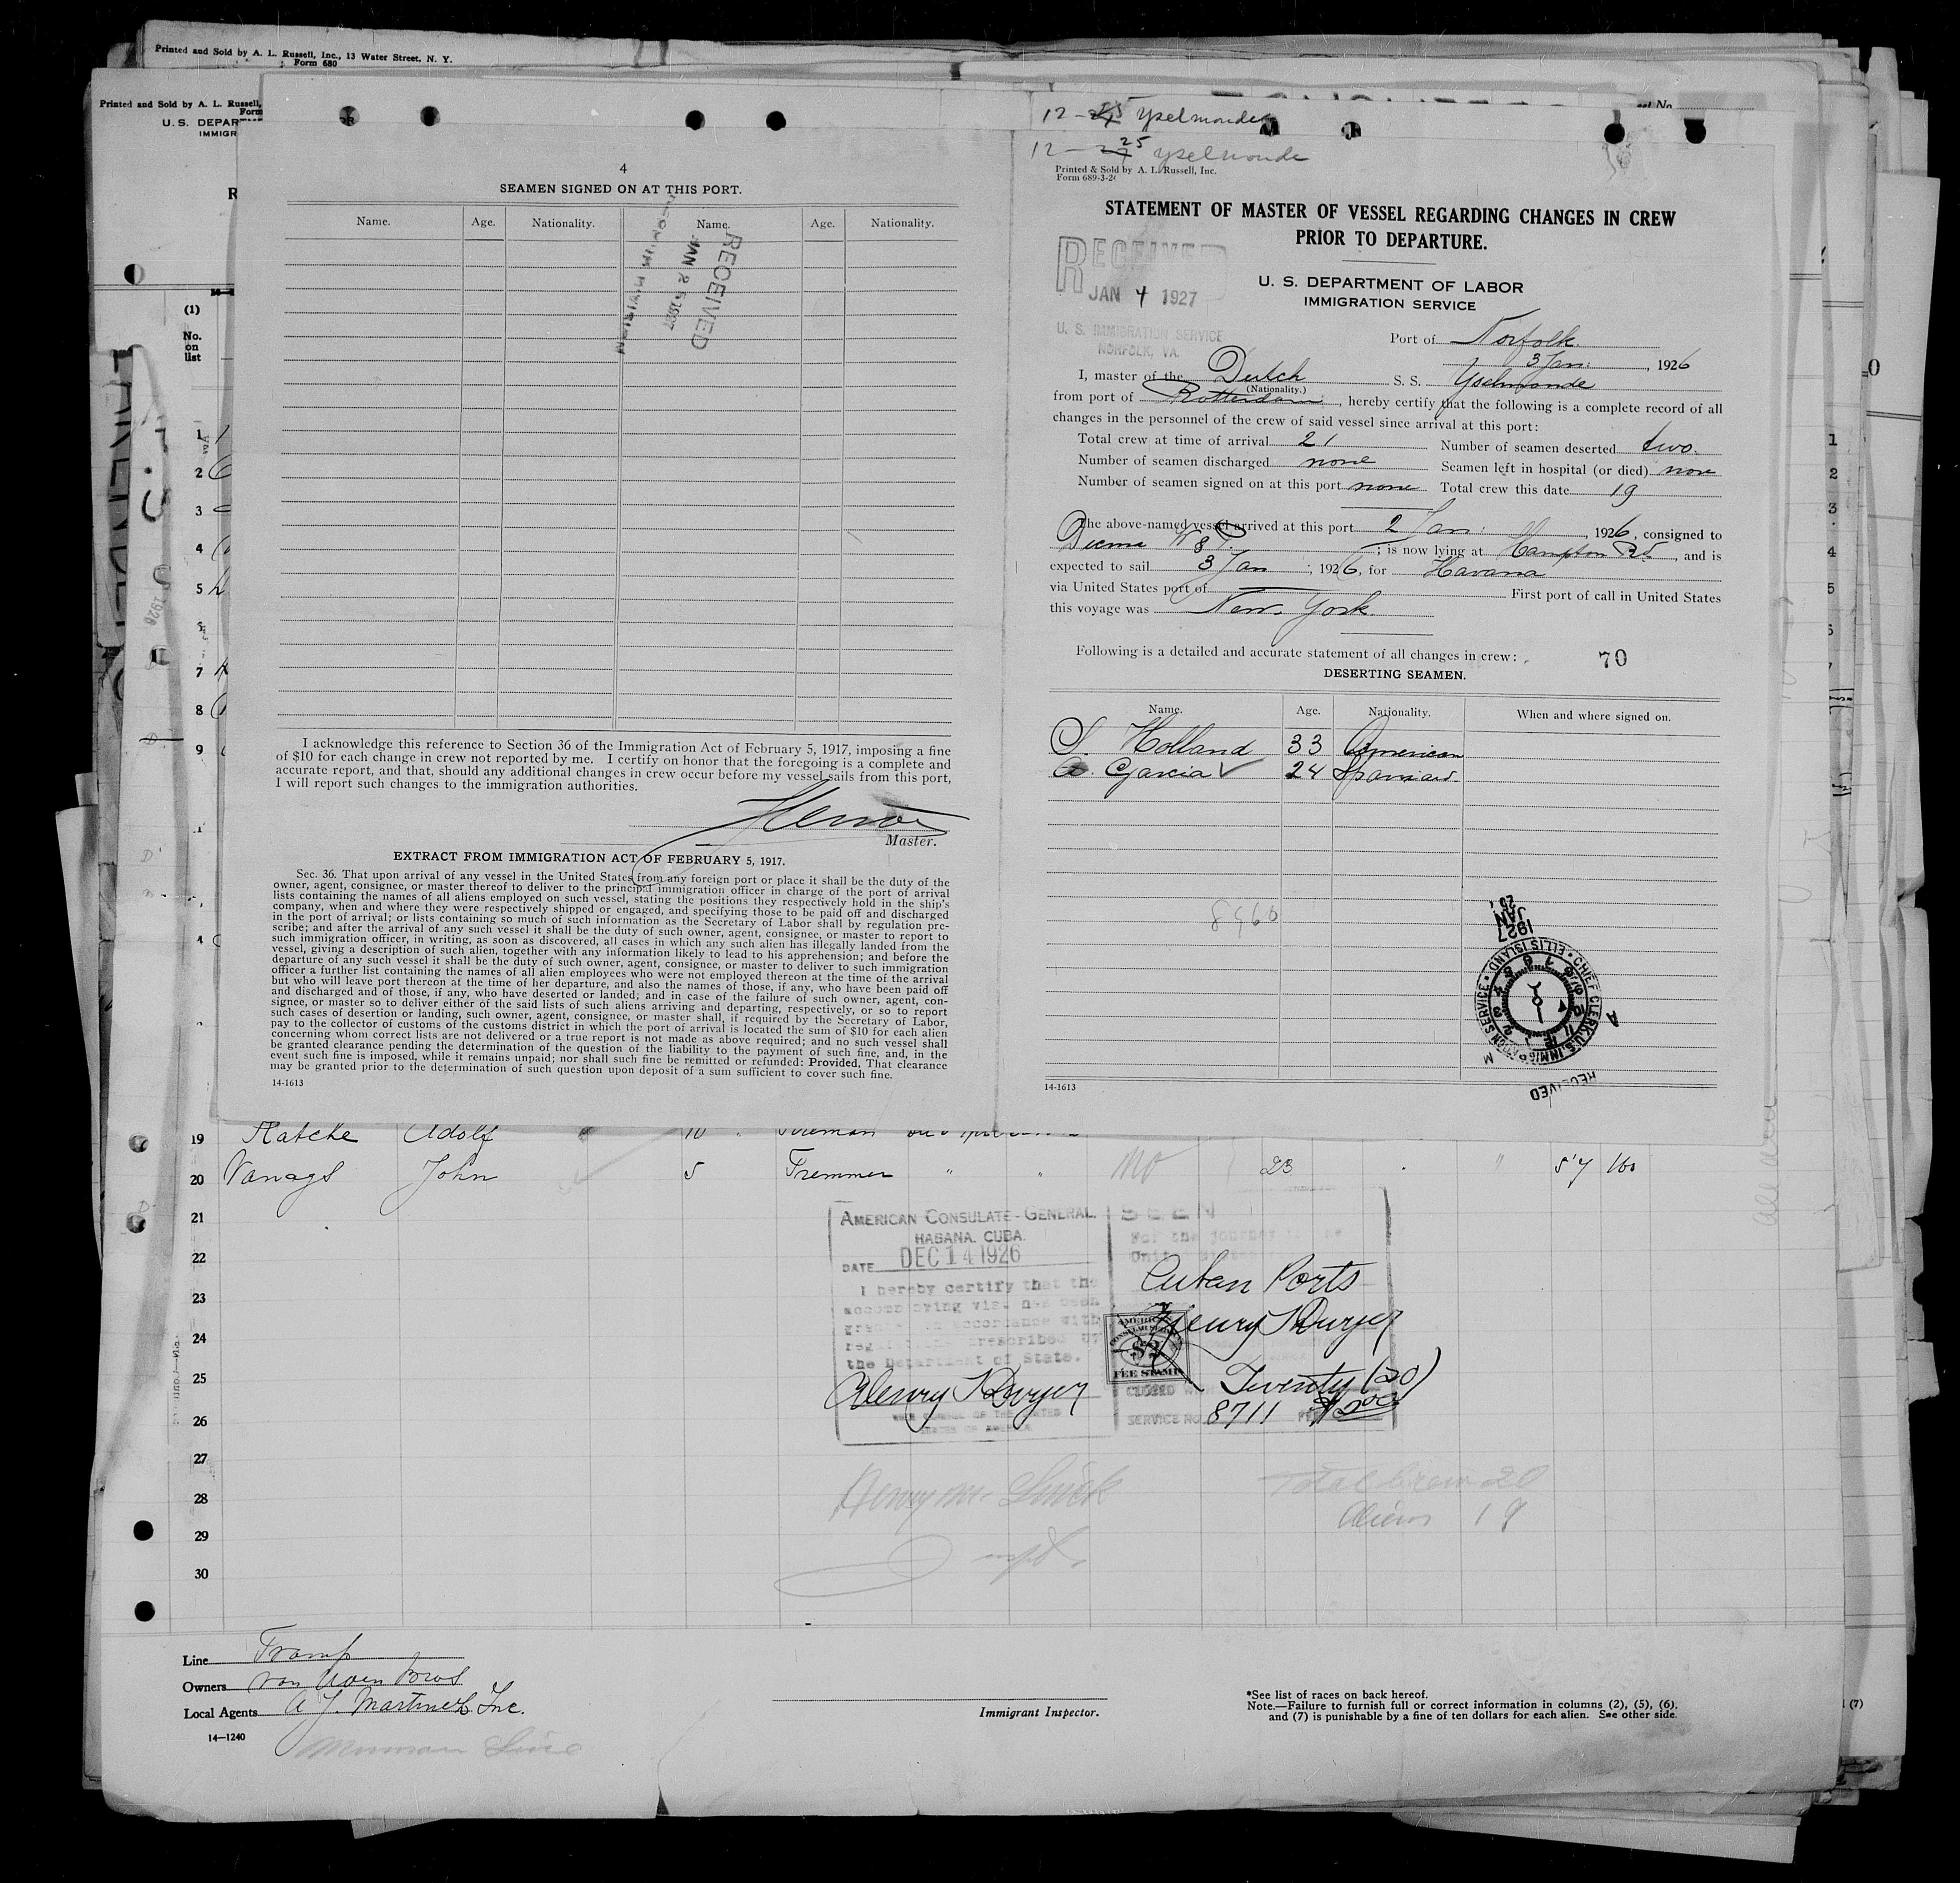 Printed and Sold by A. L. Russell, Inc., 13 Water Street, N. Y.
Form 680
Printed and Sold by A. L. Russell,
Form
U. S. DEPAR
IMMIGR
R
(1)
No.
on
list
4
SEAMEN SIGNED ON AT THIS PORT.
Name. Age. Nationality. Name. Age. Nationality.
RECEIVED
JAN 25 1927
I acknowledge this reference to Section 36 of the Immigration Act of February 5, 1917, imposing a fine
of $10 for each change in crew not reported by me. I certify on honor that the foregoing is a complete and
accurate report, and that, should any additional changes in crew occur before my vessel sails from this port,
I will report such changes to the immigration authorities.
Master.
EXTRACT FROM IMMIGRATION ACT OF FEBRUARY 5, 1917.
Sec. 36. That upon arrival of any vessel in the United States from any foreign port or place it shall be the duty of the
owner, agent, consignee, or master thereof to deliver to the principal immigration officer in charge of the port of arrival
lists containing the names of all aliens employed on such vessel, stating the positions they respectively hold in the ship's
company, when and where they were respectively shipped or engaged, and specifying those to be paid off and discharged
in the port of arrival; or lists containing so much of such information as the Secretary of Labor shall by regulation pre-
scribe; and after the arrival of any such vessel it shall be the duty of such owner, agent, consignee, or master to report to
such immigration officer, in writing, as soon as discovered, all cases in which any such alien has illegally landed from the
vessel, giving a description of such alien, together with any information likely to lead to his apprehension; and before the
departure of any such vessel it shall be the duty of such owner, agent, consignee, or master to deliver to such immigration
officer a further list containing the names of all alien employees who were not employed thereon at the time of the arrival
but who will leave port thereon at the time of her departure, and also the names of those, if any, who have been paid off
and discharged and of those, if any, who have deserted or landed; and in case of the failure of such owner, agent, con-
signee, or master so to deliver either of the said lists of such aliens arriving and departing, respectively, or so to report
such cases of desertion or landing, such owner, agent, consignee, or master shall, if required by the Secretary of Labor,
pay to the collector of customs of the customs district in which the port of arrival is located the sum of $10 for each alien
concerning whom correct lists are not delivered or a true report is not made as above required; and no such vessel shall
be granted clearance pending the determination of the question of the liability to the payment of such fine, and, in the
event such fine is imposed, while it remains unpaid; nor shall such fine be remitted or refunded: Provided, That clearance
may be granted prior to the determination of such question upon deposit of a sum sufficient to cover such fine.
14-1613
12-25 Yselmonde
12-25 Yselmonde
Printed & Sold by A. L. Russell, Inc.
Form 689-3-26
STATEMENT OF MASTER OF VESSEL REGARDING CHANGES IN CREW
PRIOR TO DEPARTURE.
RECEIVED
JAN 4 1927
U. S. IMMIGRATION SERVICE
NORFOLK, VA.
U. S. DEPARTMENT OF LABOR
IMMIGRATION SERVICE
Port of Norfolk.
3 Jan: , 1926
I, master of the Dutch S. S. Yselmonde
(Nationality.)
from port of Rotterdam, hereby certify that the following is a complete record of all
changes in the personnel of the crew of said vessel since arrival at this port:
Total crew at time of arrival 21 Number of seamen deserted two.
Number of seamen discharged none Seamen left in hospital (or died) none
Number of seamen signed on at this port none Total crew this date 19
The above-named vessel arrived at this port 2 Jan: , 1926, consigned to
; is now lying at Hampton Rd., and is
expected to sail 3 Jan , 1926, for Havana
via United States port of First port of call in United States
this voyage was New York.
Following is a detailed and accurate statement of all changes in crew: 70
DESERTING SEAMEN.
Name. Age. Nationality. When and where signed on.
S. Holland 33 American
A. Garcia 24 Spaniard
8960
1927
JAN
CHIEF CLERK U.S. IMMIGRATION SERVICE · ELLIS ISLAND
RECEIVED
14-1613
19 Adolf 10 Fireman
20 Vanags John 5 Tremmer " " no 23 " 5'7 160
21
22
23
24
25
26
27
28
29
30
AMERICAN CONSULATE-GENERAL.
HABANA, CUBA.
DATE DEC 14 1926
I hereby certify that the
accompanying visa has been
granted in accordance with
regulations prescribed by
the Department of State.
Henry T Dwyer
SEEN
For the journey to the
United States
Cuban Ports
Henry T Dwyer
AMERICAN
CONSULAR SERVICE
$2
FEE STAMP
Twenty (20)
SERVICE NO. 8711 FEE $2.00
Total Crew 20
Aliens 19
Line Tramp
Owners van Uden Bros
Local Agents A J. Martinez Inc.
14-1240
Munson Line
Immigrant Inspector.
*See list of races on back hereof.
Note.—Failure to furnish full or correct information in columns (2), (5), (6),
and (7) is punishable by a fine of ten dollars for each alien. See other side.